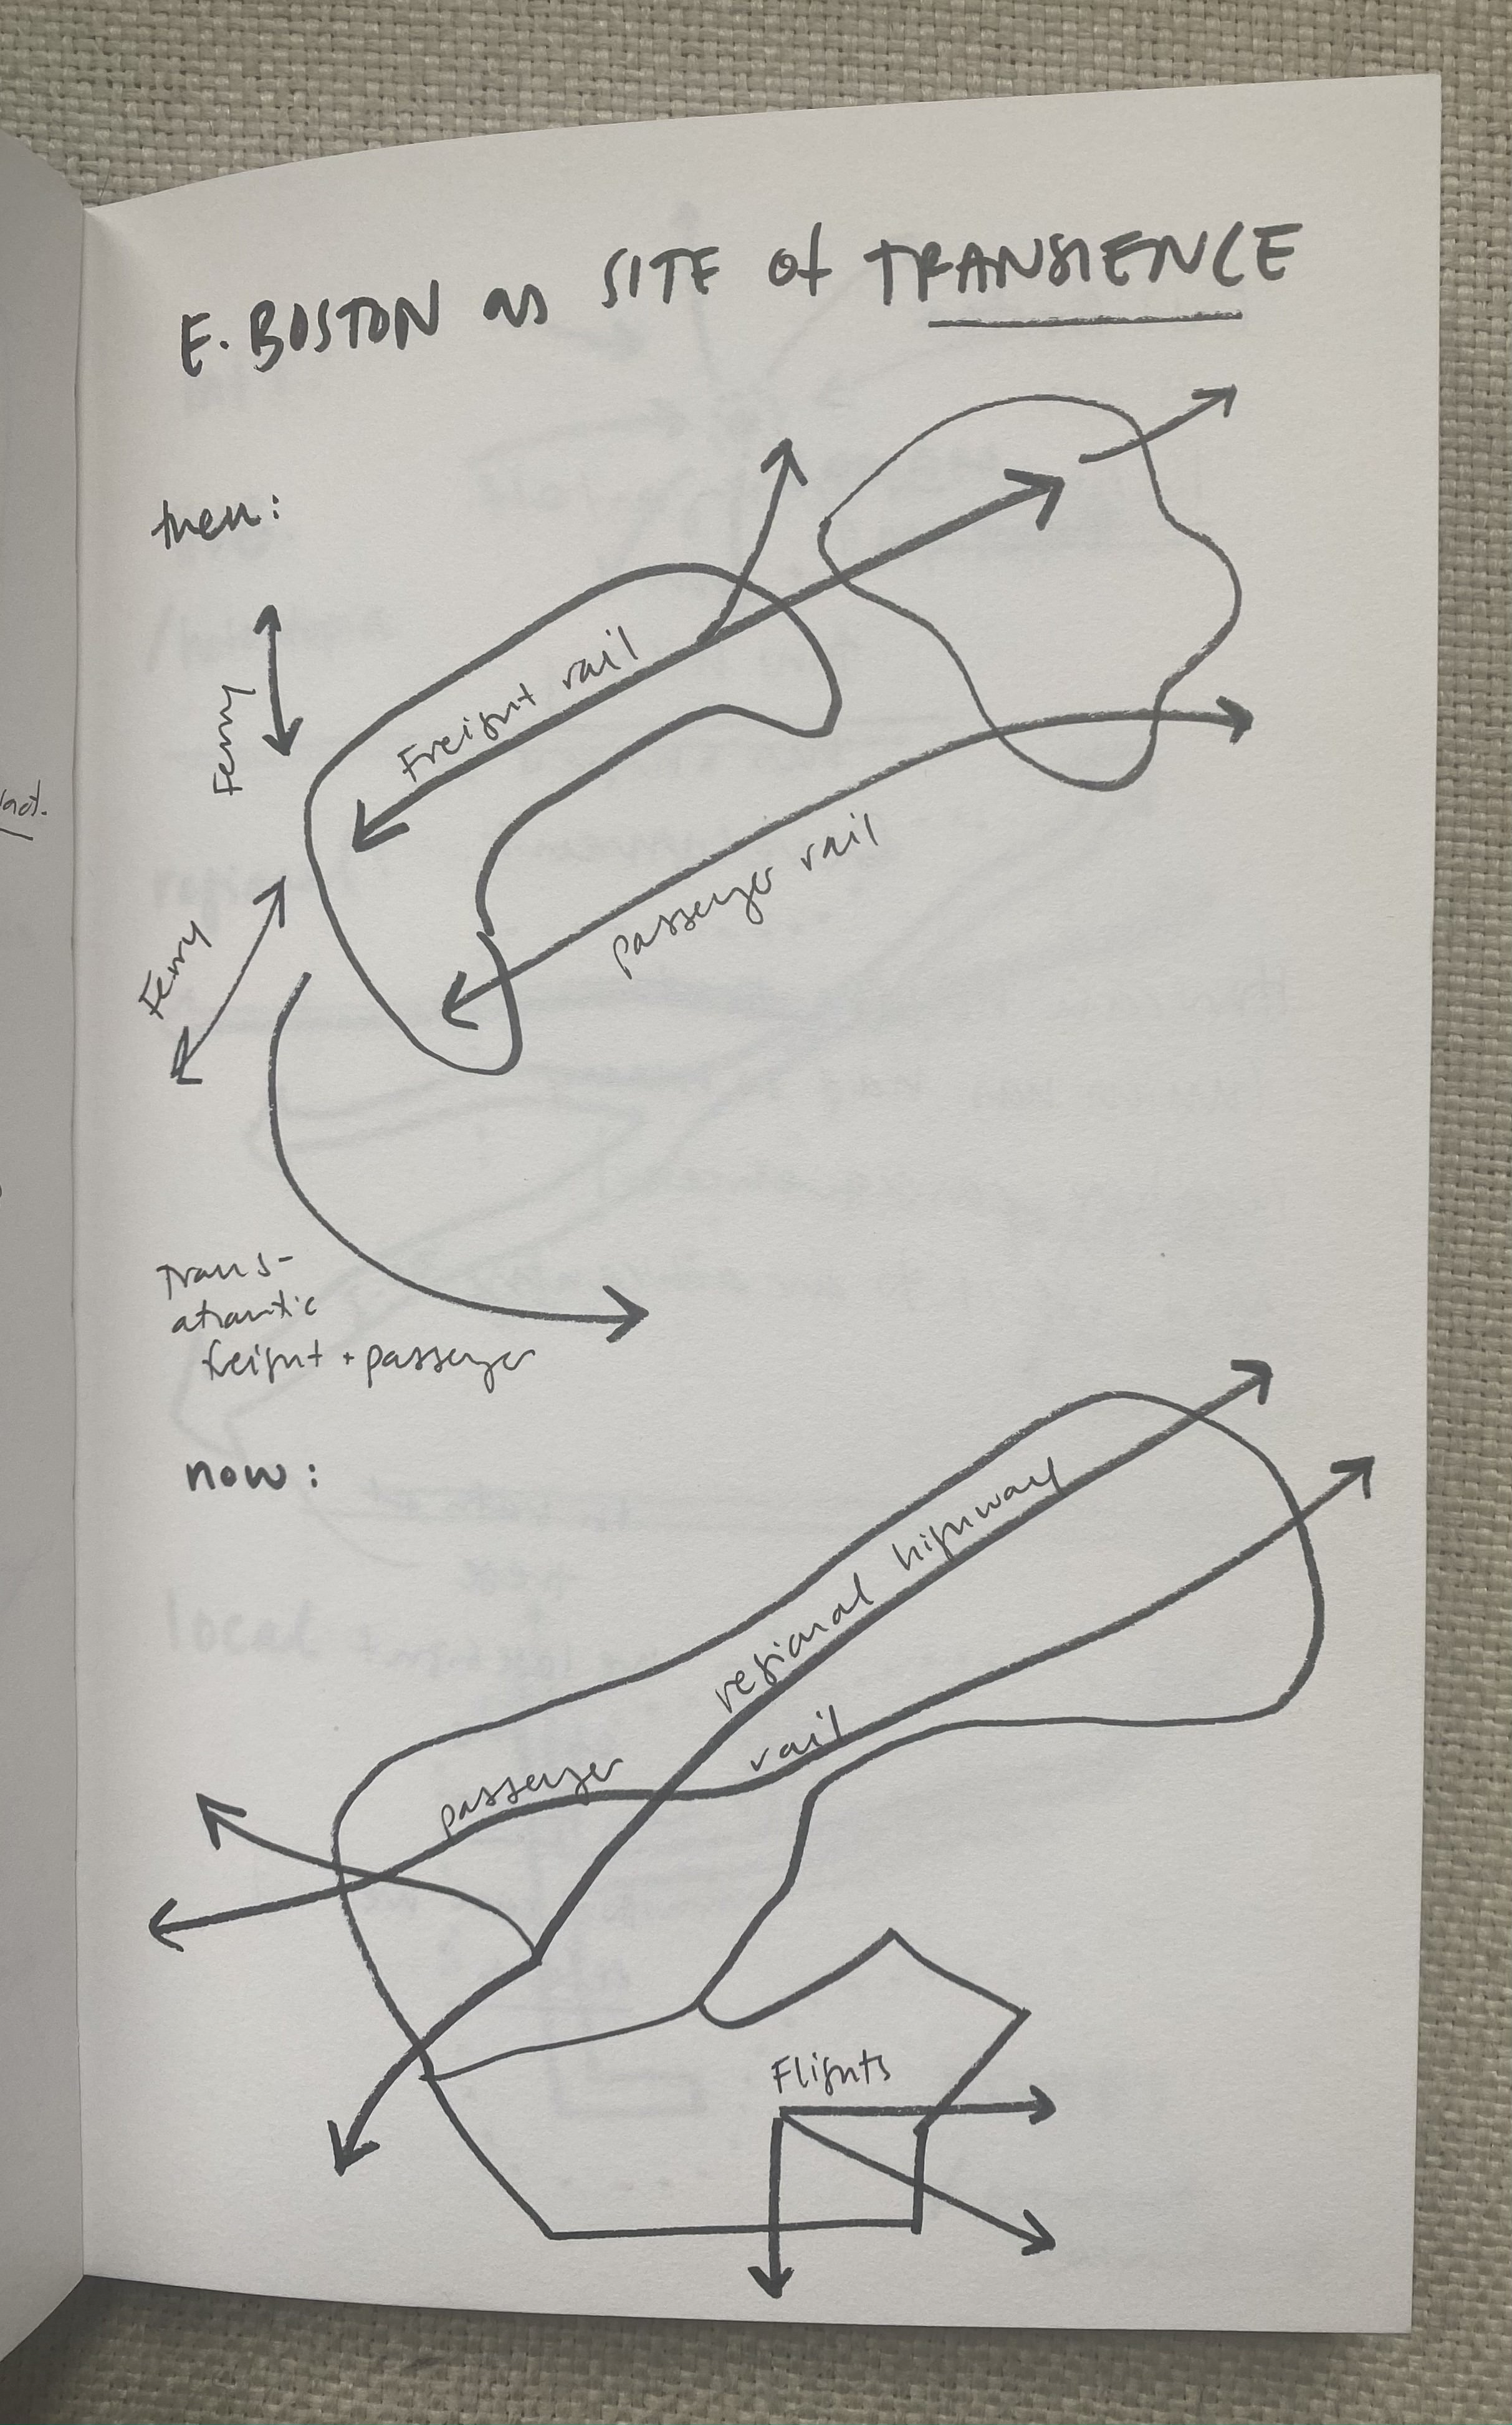 E. BOSTON as SITE of TRANSIENCE
then:
Ferry
Freight rail
Ferry
passenger rail
Trans-
atlantic
freight + passenger
now:
regional highway
passenger rail
Flights